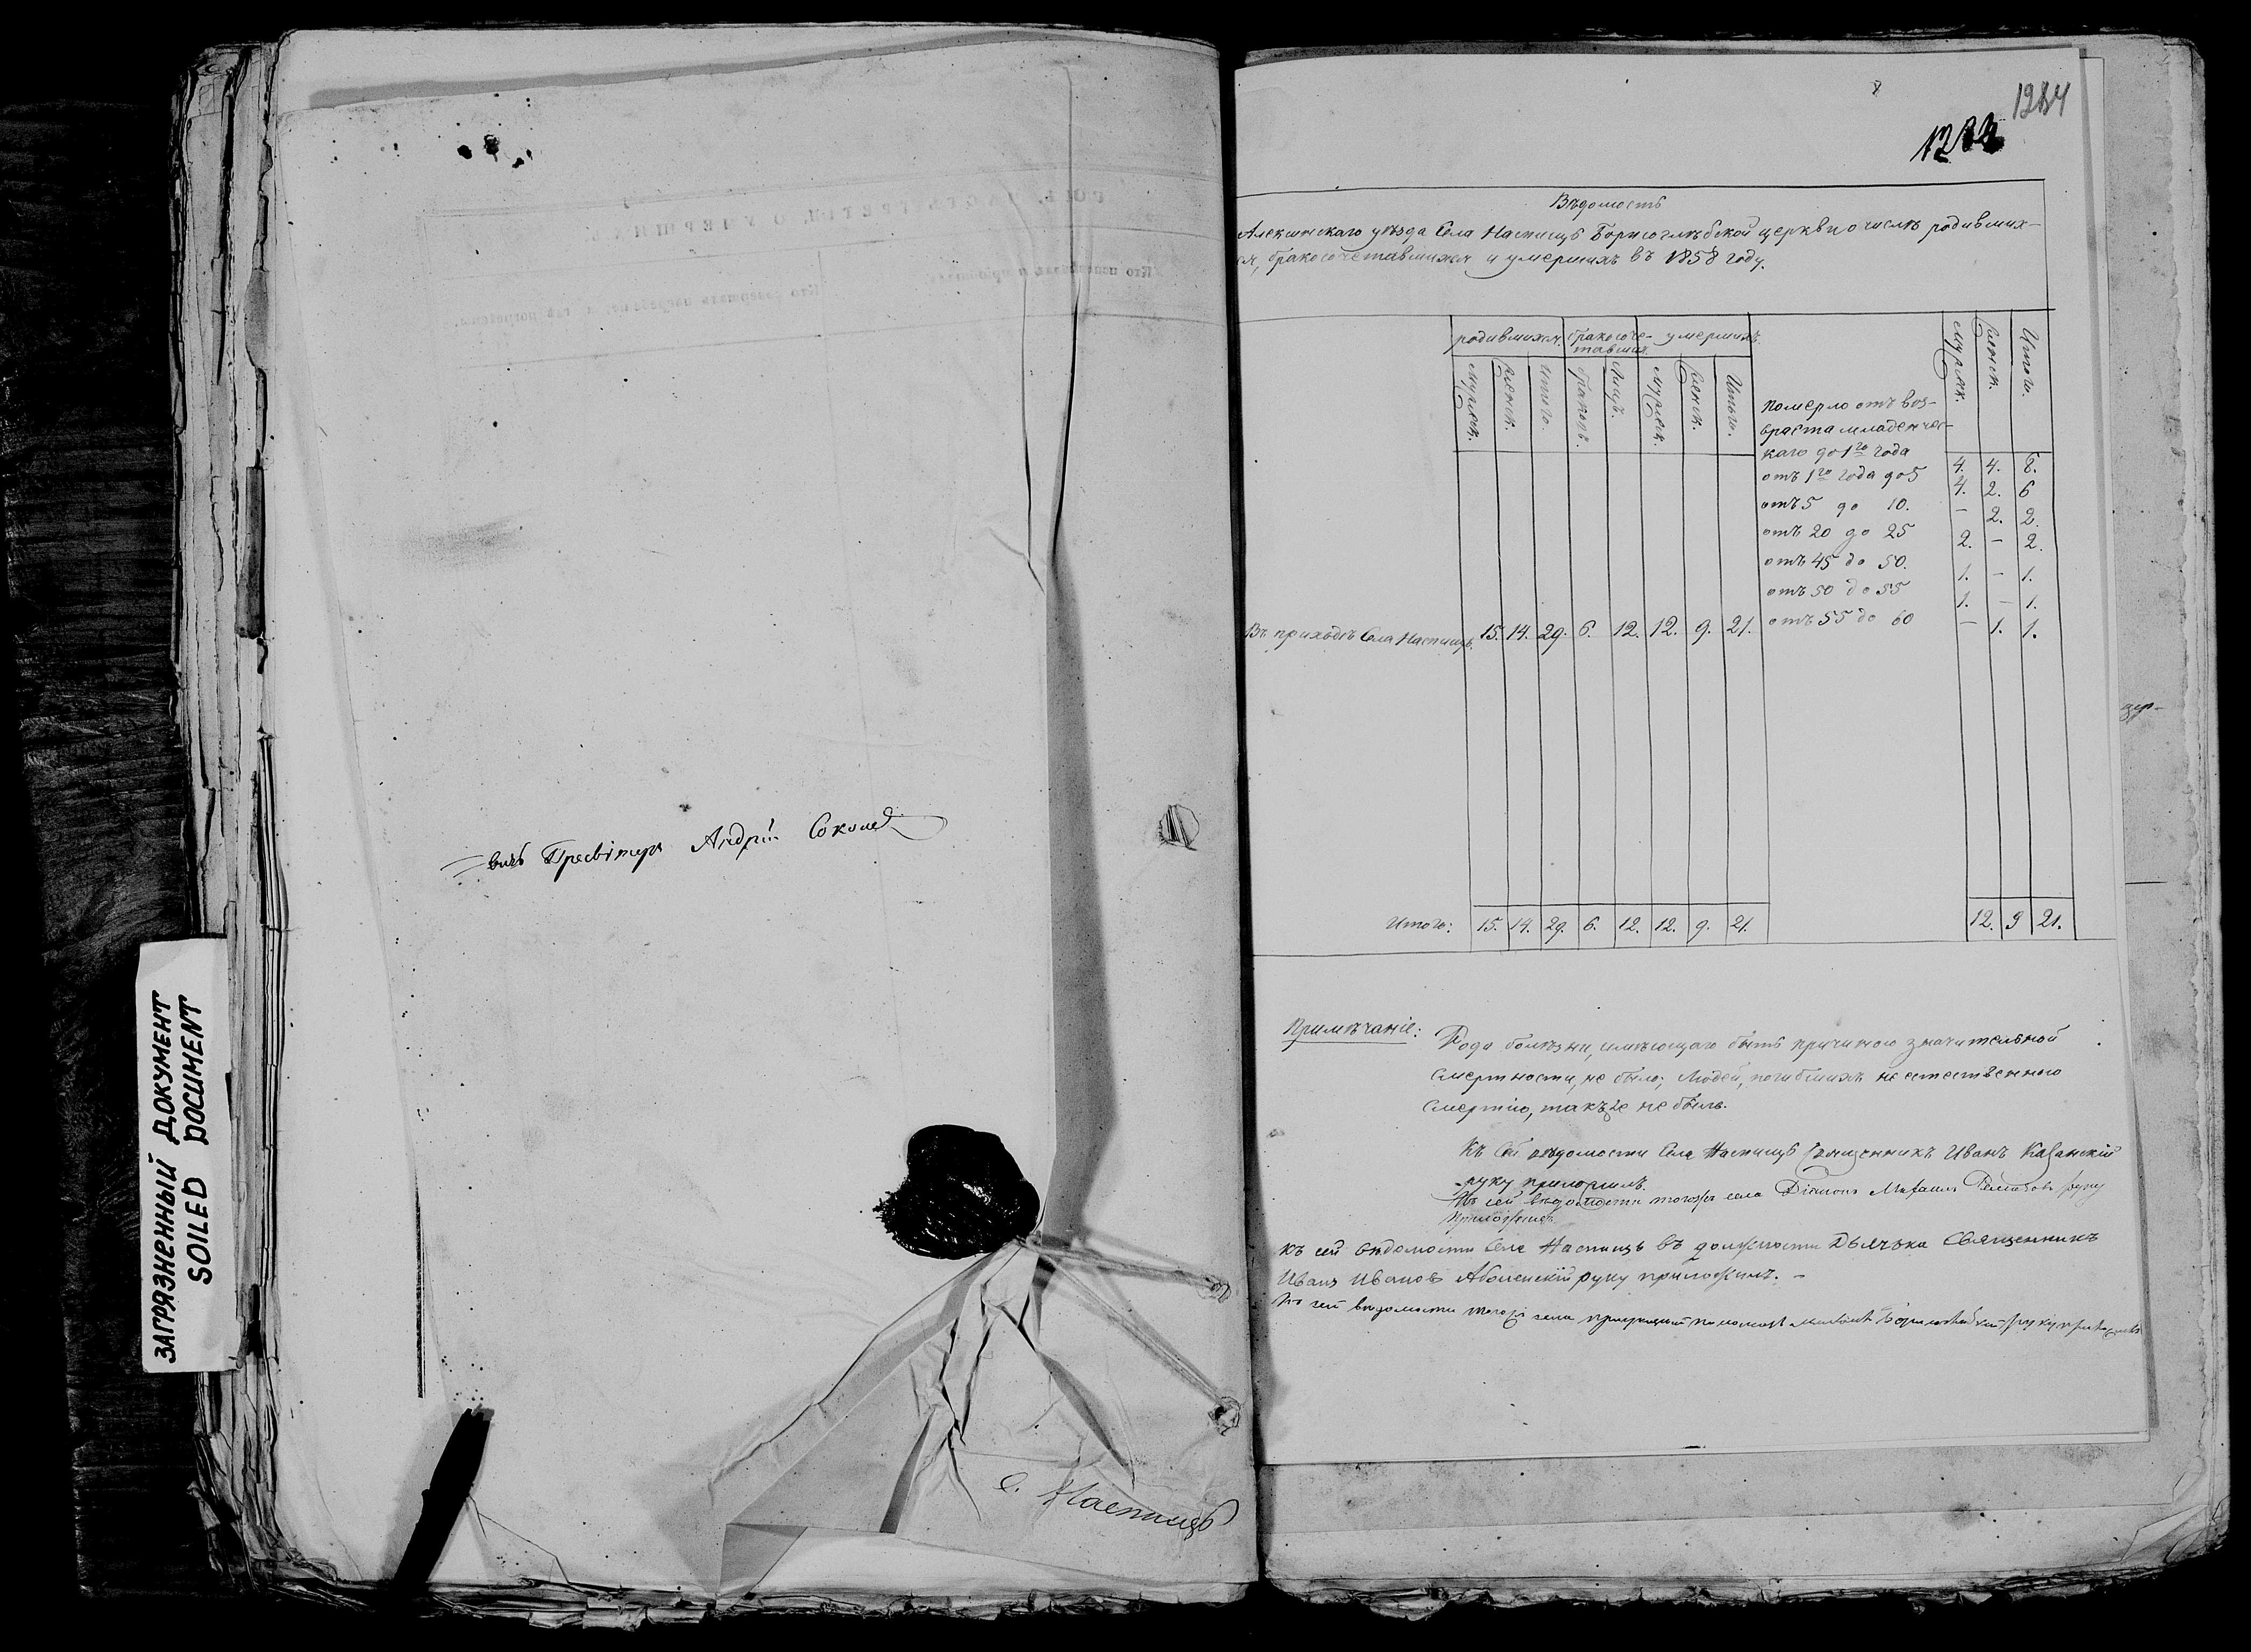 ЗАГРЯЗНЕННЫЙ ДОКУМЕНТ
SOILED DOCUMENT
вичъ Пресвітеръ Андрій Соколов
с. Наспищъ
1284
Вѣдомость
Алексинскаго уѣзда Села Наспищъ Борисоглѣбской церкви о числѣ родивших-
ся, бракосочетавшихся и умершихъ въ 1858 году.
родившихся. бракосоче- умершихъ.
тавших.
мужеск. женск. итого. браковъ. лицъ. мужеск. женск. Итого. мужеск. женск. Итого.
Померло отъ воз-
враста младенчес-
каго до 1го года 4. 4. 8.
отъ 1го года до 5 4. 2. 6
отъ 5 до 10. - 2. 2.
отъ 20 до 25 2. - 2.
отъ 45 до 50. 1. - 1.
отъ 50 до 55 1. - 1.
отъ 55 до 60 - 1. 1.
Въ приходѣ Села Наспищъ. 15. 14. 29. 6. 12. 12. 9. 21.
Итого: 15. 14. 29. 6. 12. 12. 9. 21. 12. 9 21.
Примѣчаніе:
Рода болѣзни, имѣющаго быть причиною значительной
смертности, не было; Людей, погибшихъ неестественною
смертію, такъже не было.
Къ сей вѣдомости Села Наспищъ Священникъ Иванъ Казанскій
руку приложилъ.
Къ сей вѣдомости тогожъ села Діаконъ руку
приложилъ
Къ сей вѣдомости Села Наспищъ въ должности Дьячька Священникъ
Иванъ Ивановъ Аболенскій руку приложилъ. -
Къ сей вѣдомости тогожъ села руку приложилъ